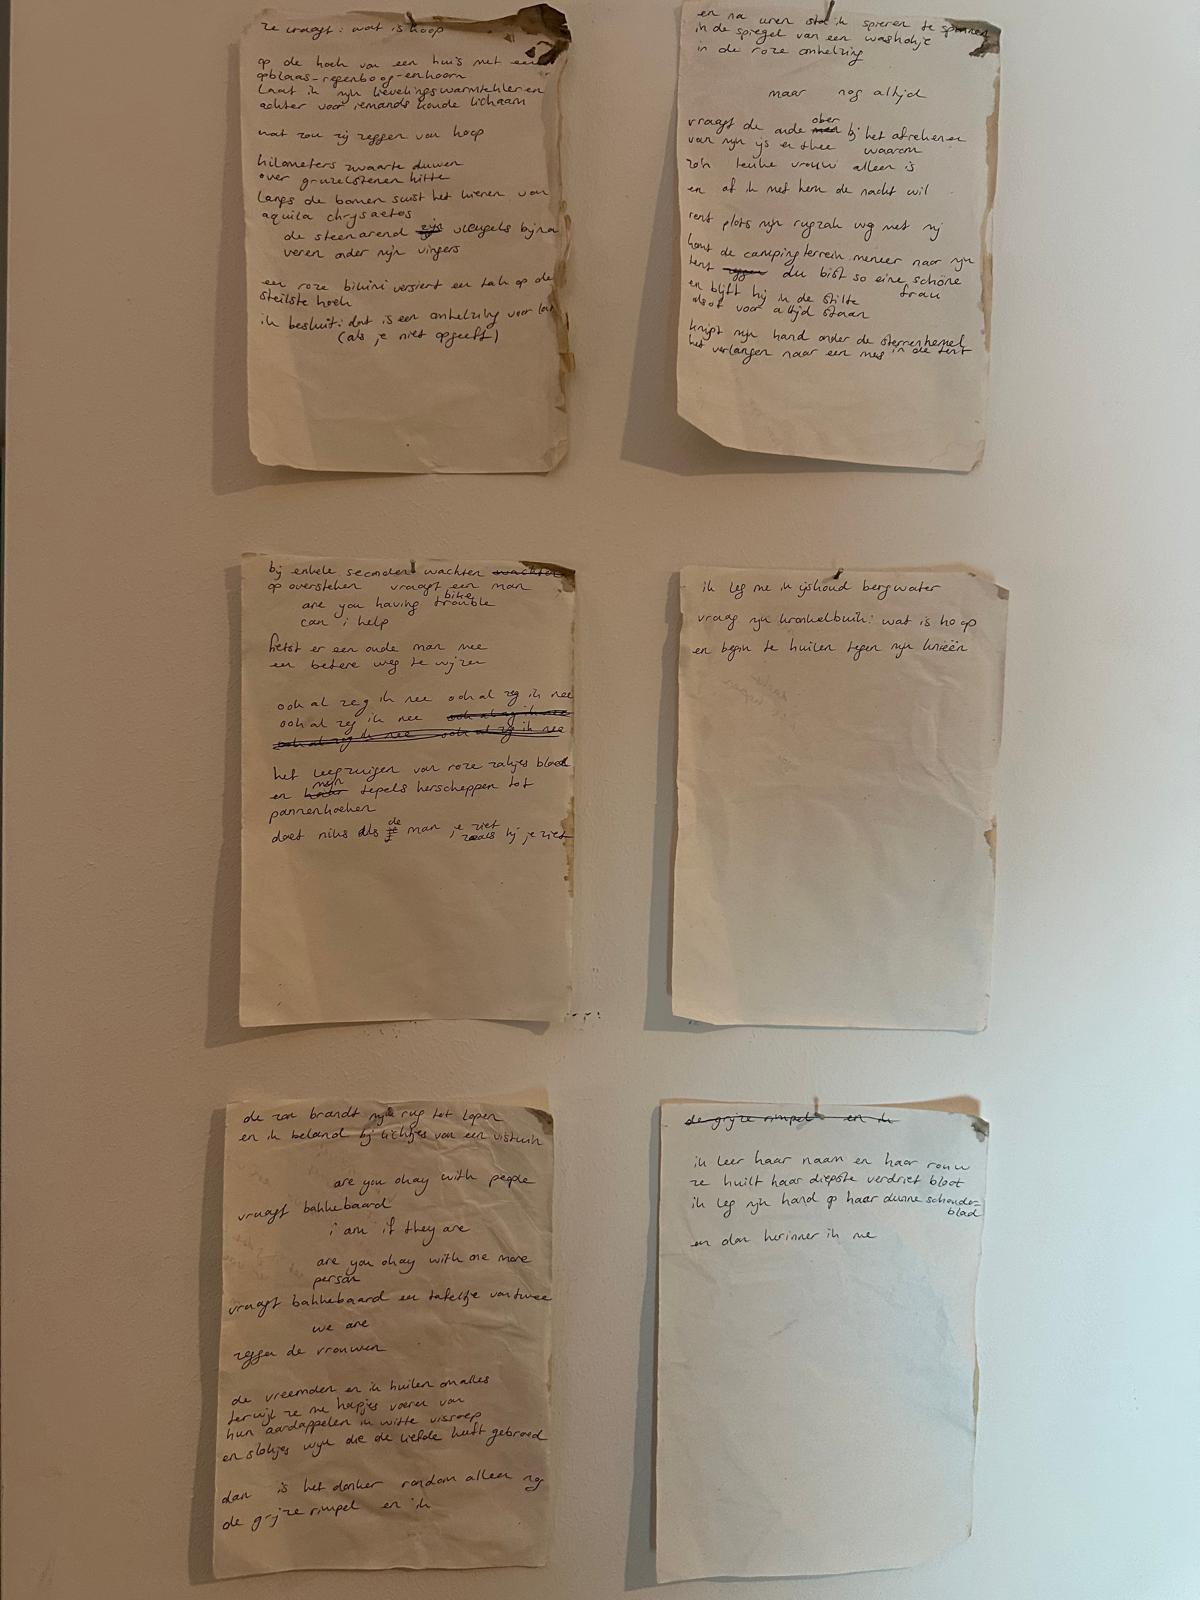 ze vraagt: wat is hoop
op de hoek van een huis met een
opblaas-regenboog-eenhoorn
laat ik mijn lievelingswarmtehleren
achter voor iemands koude lichaam
wat zou zij zeggen van hoop
kilometers zwaarte duwen
over gruzelstenen hitte
langs de bomen suist het kieren van
aquila chrysaetos
de steenarend zijn vleugels bijna
veren onder mijn vingers
een roze bikini versiert een tak op de
steilste hoek
ik besluit: dat is een omhelzing voor later
(als je niet opgeeft)
en na uren sta ik spieren te spannen
in de spiegel van een washokje
in de roze omhelzing
maar nog altijd
vraagt de oude ober bij het afrekenen
van mijn ijs en thee waarom
zo'n leuke vrouw alleen is
en of ik met hem de nacht wil
rent plots mijn rugzak weg met mij
komt de campingterrein meneer naar mijn
tent zeggen du bist so eine schöne
frau
en blijft hij in de stilte
alsof voor altijd staan
knijpt mijn hand onder de sterrenhemel
het verlangen naar een mes in de tent
bij enkele seconden wachten wachten
op oversteken vraagt een man
are you having bike trouble
can i help
fietst er een oude man mee
een betere weg te wijzen
ook al zeg ik nee ook al zeg ik nee
ook al zeg ik nee ook al zeg ik nee
ook al zeg ik nee ook al zeg ik nee
het leegzuigen van roze zakjes bloed
en haar mijn tepels herscheppen tot
pannenkoeken
doet niks als de man je ziet
zoals hij je ziet
ik leg me in ijskoud bergwater
vraag mijn kronkelbuik: wat is hoop
en begin te huilen tegen mijn knieën
de zon brandt mijn rug tot lopen
en ik beland bij lichtjes van een vistuin
are you okay with people
vraagt bakkebaard
i am if they are
are you okay with one more
person
vraagt bakkebaard een tafeltje van twee
we are
zeggen de vrouwen
de vreemden en ik huilen om alles
terwijl ze me hapjes voeren van
hun aardappelen in witte vissoep
en slokjes wijn die de liefde heeft gebroed
dan is het donker rondom alleen nog
de grijze rimpel en ik
de grijze rimpel en ik
ik leer haar naam en haar rouw
ze huilt haar diepste verdriet bloot
ik leg mijn hand op haar dunne schouder=
blad
en dan herinner ik me